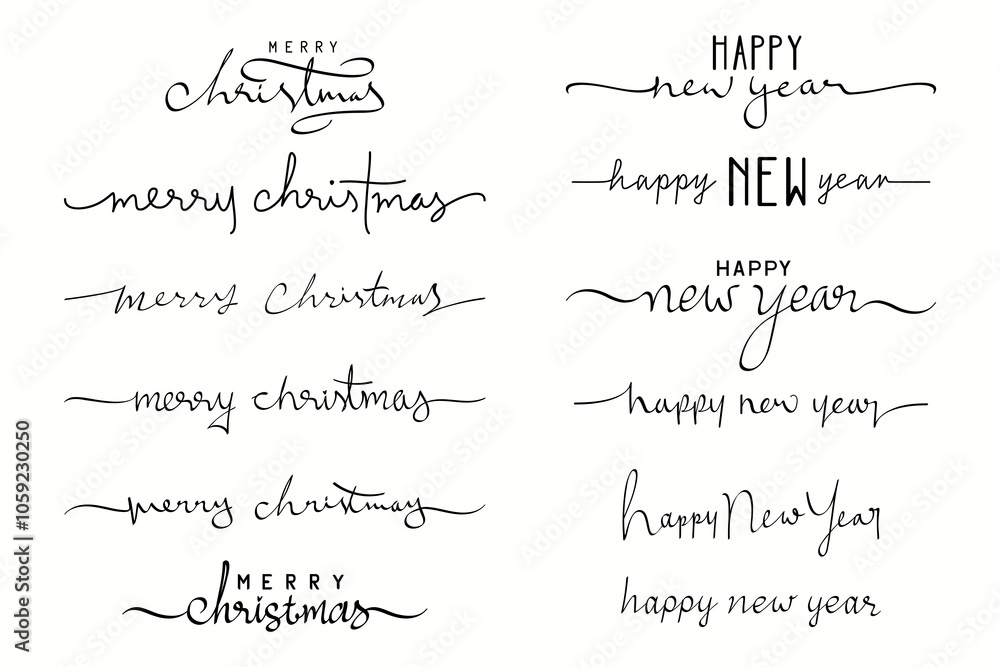 MERRY
christmas
merry christmas
merry christmas
merry christmas
merry christmas
MERRY
christmas
HAPPY
new year
happy NEW year
HAPPY
new year
happy new year
Happy New Year
happy new year
Adobe Stock | #1059230250